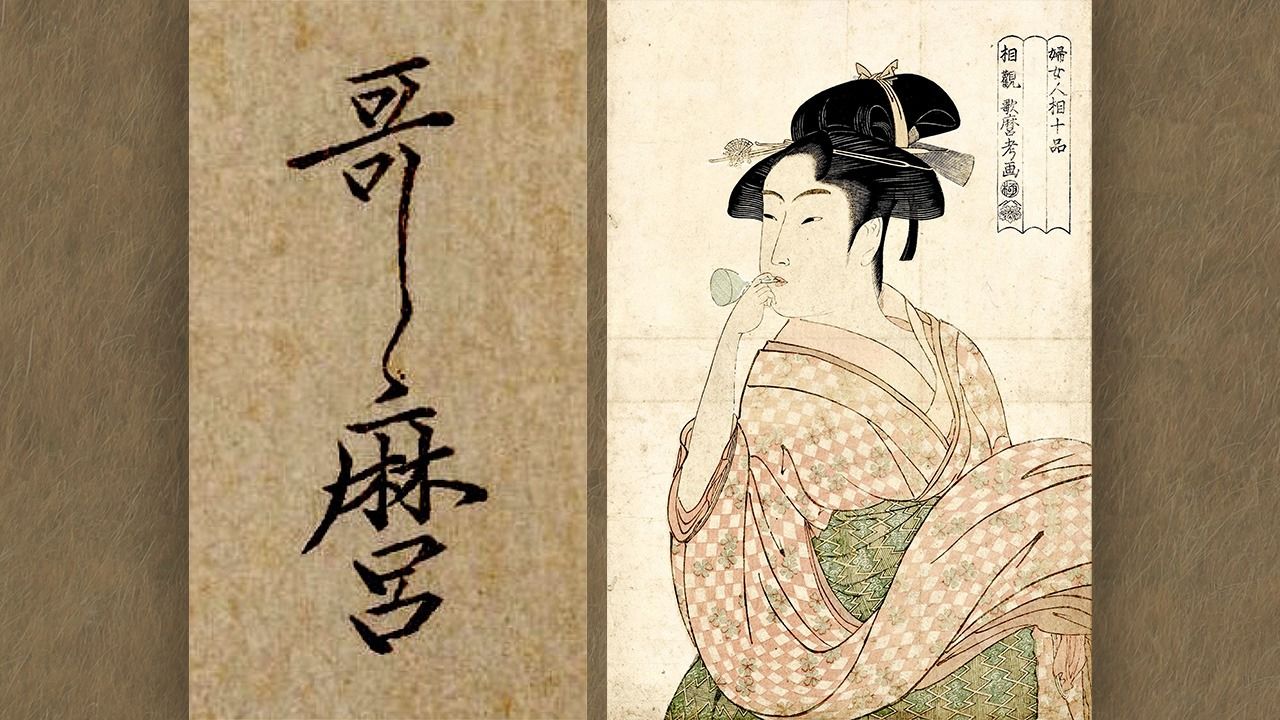 哥麿
婦女人相十品
相觀 歌麿考画